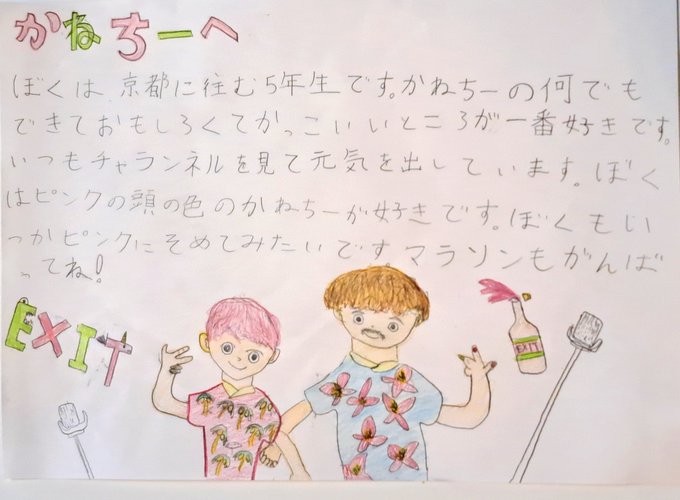 かねちーへ
ぼくは京都に住む5年生です。かねちーの何でも
できておもしろくてかっこいいところが一番好きです。
いつもチャランネルを見て元気を出しています。ぼく
はピンクの頭の色のかねちーが好きです。ぼくもい
っかピンクにそめてみたいですマラソンもがんば
ってね!
EXIT
EXIT